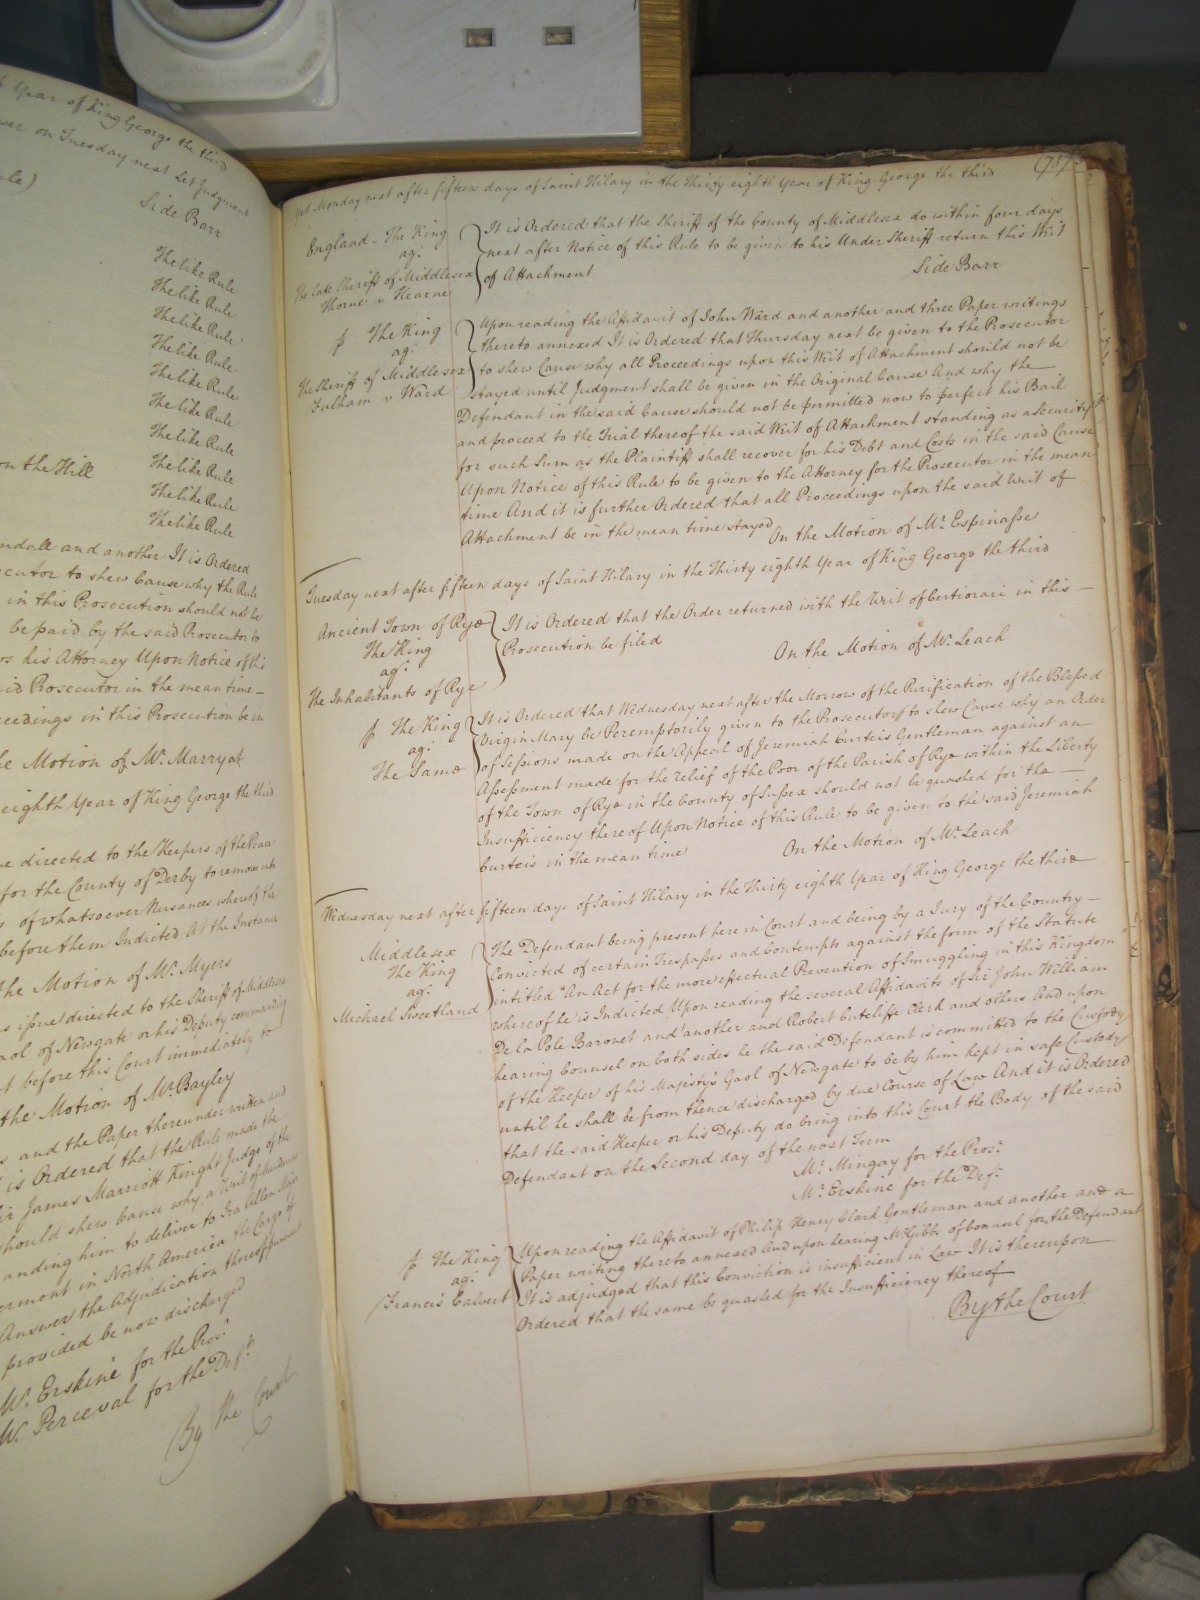 Year of King George the third
on Tuesday next Let Judgment
Side Barr
The like Rule
The like Rule
The like Rule
The like Rule
The like Rule
The like Rule
The like Rule
on the Hill The like Rule
The like Rule
The like Rule
and another It is Ordered
to shew Cause why the Rule
in this Prosecution should not be
be paid by the said Prosecutor to
his Attorney Upon Notice of this
Prosecutor in the mean time
in this Prosecution be in
Motion of Mr. Marryat
eighth Year of King George the third
directed to the Keepers of the Peace
for the County of Derby to remove
of whatsoever Nusances whereof the
before them Indicted At the Instance
the Motion of Mr. Myers
issue directed to the Sheriff of Middlesex
Gaol of Newgate or his Deputy commanding
before this Court immediately to
the Motion of Mr. Bayley
and the Paper thereunder written and
is Ordered that the Rule made the
Sir James Marriott Knight Judge of the
should shew Cause why a Writ of
commanding him to deliver to Ira Allen
in North America the Cargo of
Answer the Adjudication thereof
provided be now discharged
Mr. Erskine for the Pros.r
Mr. Perceval for the Def.t
By the Court
(737)
Yet Monday next after fifteen days of Saint Hilary in the Thirty eighth Year of King George the third
England – The King
ag.t
The late Sheriff of Middlesex
Thorne v Hearne
It is Ordered that the Sheriff of the County of Middlesex do within four days
next after Notice of this Rule to be given to his Under Sheriff return this Writ
of Attachment Side Barr
The King
ag.t
The Sheriff of Middlesex
Fulham v Ward
Upon reading the Affidavit of John Ward and another and three Paper writings
thereto annexed It is Ordered that Thursday next be given to the Prosecutor
to shew Cause why all Proceedings upon this Writ of Attachment should not be
stayed until Judgment shall be given in the Original Cause And why the
Defendant in the said Cause should not be permitted now to perfect his Bail
and proceed to the Trial thereof the said Writ of Attachment standing as a Security
for such Sum as the Plaintiff shall recover for his Debt and Costs in the said Cause
Upon Notice of this Rule to be given to the Attorney for the Prosecutor in the mean
time And it is further Ordered that all Proceedings upon the said Writ of
Attachment be in the mean time stayed On the Motion of Mr. Espinasse
Tuesday next after fifteen days of Saint Hilary in the Thirty eighth Year of King George the third
Ancient Town of Rye
The King
ag.t
The Inhabitants of Rye
It is Ordered that the Order returned with the Writ of Certiorari in this
Prosecution be filed On the Motion of Mr. Leach
The King
ag.t
The Same
It is Ordered that Wednesday next after the Morrow of the Purification of the Blessed
Virgin Mary be Peremptorily given to the Prosecutors to shew Cause why an Order
of Sessions made on the Appeal of Jeremiah Curteis Gentleman against an
Assessment made for the relief of the Poor of the Parish of Rye within the Liberty
of the Town of Rye in the County of Sussex should not be quashed for the
Insufficiency thereof Upon Notice of this Rule to be given to the said Jeremiah
Curteis in the mean time On the Motion of Mr. Leach
Wednesday next after fifteen days of Saint Hilary in the Thirty eighth Year of King George the third
Middlesex
The King
ag.t
Michael Sweetland
The Defendant being present here in Court and being by a Jury of the Country
Convicted of certain Trespasses and Contempts against the form of the Statute
intitled "An Act for the more effectual Prevention of Smuggling in this Kingdom"
whereof he is Indicted Upon reading the several Affidavits of Sir John William
De la Pole Baronet and another and Robert Cutcliffe Clerk and others And upon
hearing Counsel on both sides he the said Defendant is committed to the Custody
of the Keeper of his Majesty's Gaol of Newgate to be by him kept in safe Custody
until he shall be from thence discharged by due Course of Law And it is Ordered
that the said Keeper or his Deputy do bring into this Court the Body of the said
Defendant on the Second day of the next Term
Mr. Mingay for the Pros.r
Mr. Erskine for the Def.t
The King
ag.t
Francis Calvert
Upon reading the Affidavit of Philip Henry Clark Gentleman and another and a
Paper writing thereto annexed And upon hearing Mr. Gibbs of Counsel for the Defendant
It is adjudged that this Conviction is insufficient in Law It is thereupon
Ordered that the same be quashed for the Insufficiency thereof
By the Court